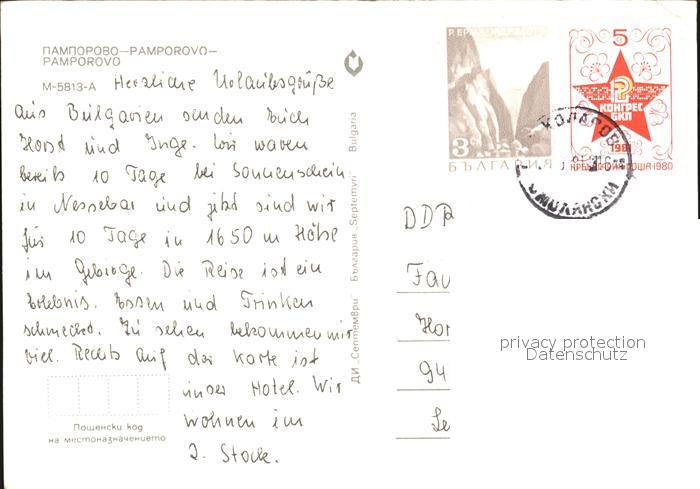 ПАМПОРОВО—PAMPOROVO—
PAMPOROVO
M-5813-A
Herzliche Urlaubsgrüße
aus Bulgarien senden Euch
Horst und Inge. Wir waren
bereits 10 Tage bei Sonnenschein
in Nessebar und jetzt sind wir
für 10 Tage in 1650 m Höhe
im Gebirge. Die Reise ist ein
Erlebnis. Essen und Trinken
schmeckt. Zu sehen bekommen wir
viel. Rechts auf der Karte ist
unser Hotel. Wir
wohnen im
2. Stock.
Пощенски код
на местоназначението
ДИ „Септември" България „Septemvri" Bulgaria
3
БЪЛГАРИЯ
5
КОНГРЕС
БКП
1981
1980
КОЛАРОВ
СМОЛЯНСКИ
DDR
Fau
Hor
94
Se
privacy protection
Datenschutz